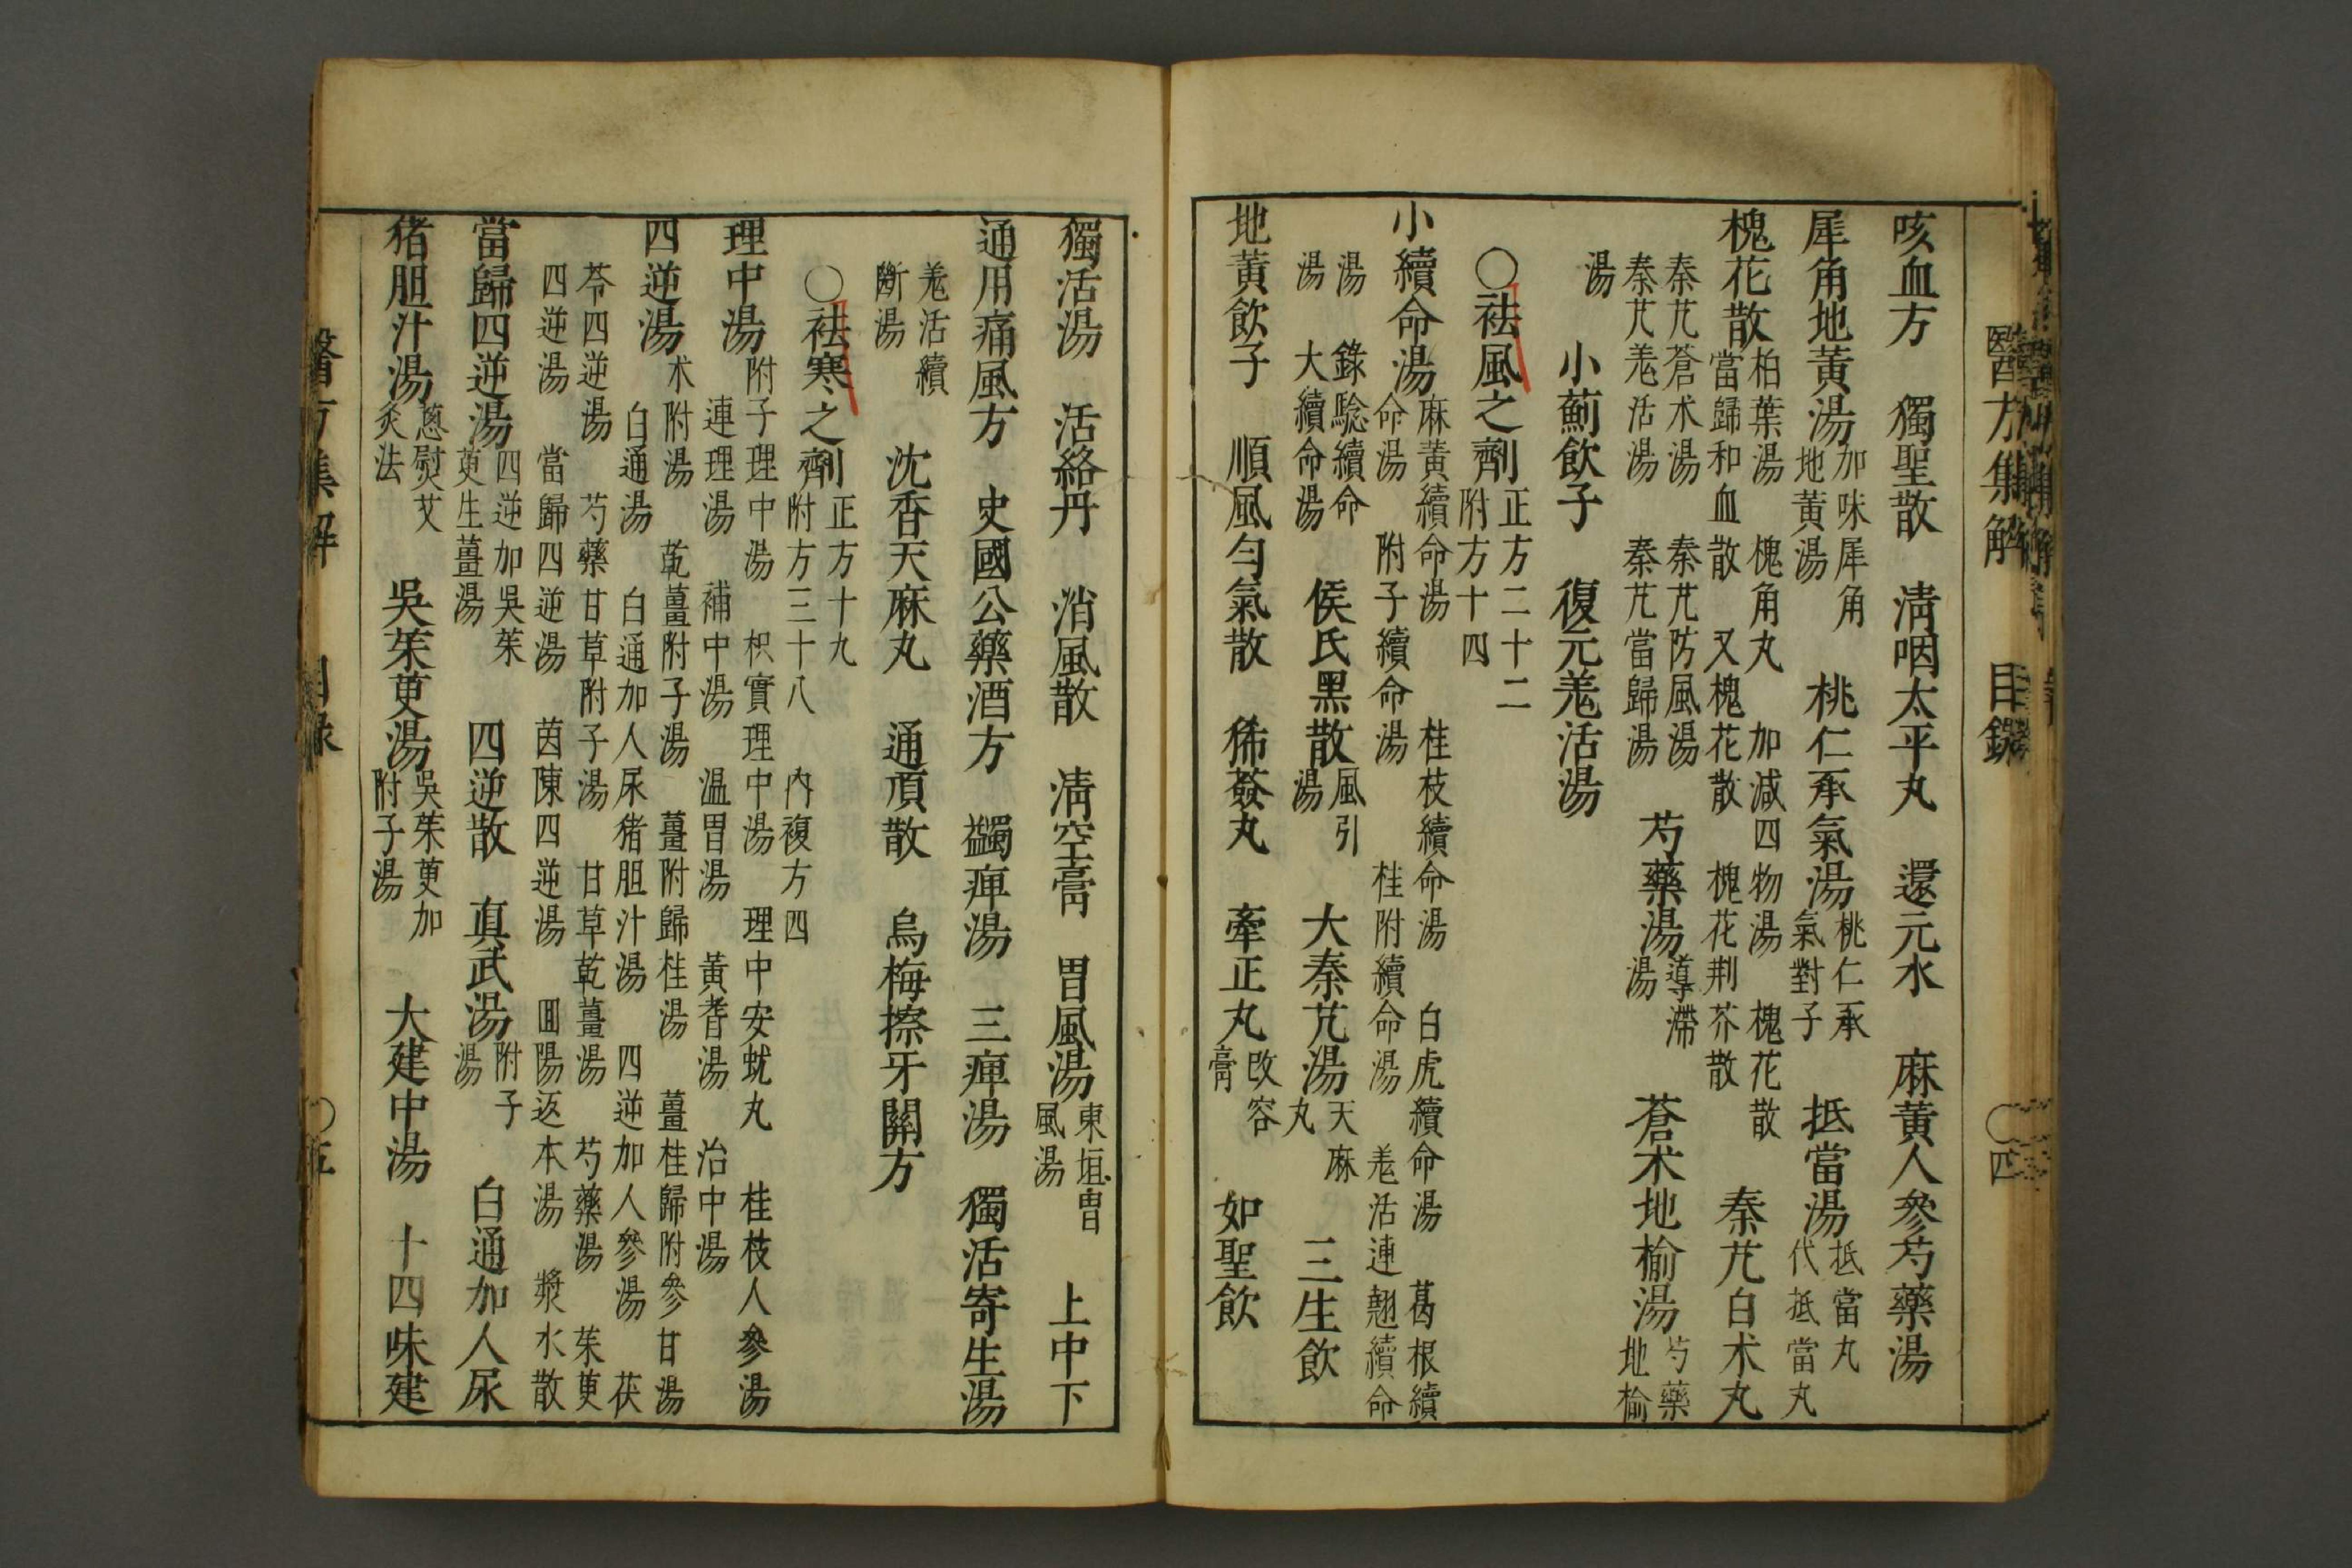 醫方集解 目錄 〇四
咳血方 獨聖散 清咽太平丸 還元水 麻黃人參芍藥湯
犀角地黃湯 加味犀角地黃湯 桃仁承氣湯 桃仁承氣對子 抵當湯 抵當丸 代抵當丸
槐花散 柏葉湯 槐角丸 加減四物湯 槐花散 當歸和血散 又槐花散 槐花荆芥散 秦艽白朮丸
秦艽蒼朮湯 秦艽防風湯 秦艽羌活湯 秦艽當歸湯 芍藥湯 導滯湯 蒼朮地榆湯 芍藥地榆
湯 小薊飲子 復元羌活湯
〇祛風之劑 正方二十二 附方十四
小續命湯 麻黃續命湯 桂枝續命湯 白虎續命湯 葛根續命湯 附子續命湯 桂附續命湯 羌活連翹續命
湯 錄驗續命湯 大續命湯 侯氏黑散 風引湯 大秦艽湯 天麻丸 三生飲
地黃飲子 順風勻氣散 豨薟丸 牽正丸 改容膏 如聖飲
獨活湯 活絡丹 消風散 清空膏 胃風湯 東垣胃風湯 上中下
通用痛風方 史國公藥酒方 蠲痺湯 三痺湯 獨活寄生湯
羌活續斷湯 沈香天麻丸 通頂散 烏梅擦牙關方
〇祛寒之劑 正方十九 附方三十八 內複方四
理中湯 附子理中湯 枳實理中湯 理中安蚘丸 桂枝人參湯 連理湯 補中湯 溫胃湯 黃耆湯 治中湯
四逆湯 朮附湯 乾薑附子湯 薑附歸桂湯 薑桂歸附參甘湯 白通湯 白通加人尿猪胆汁湯 四逆加人參湯 茯
苓四逆湯 芍藥甘草附子湯 甘草乾薑湯 芍藥湯 茱萸四逆湯 當歸四逆湯 茵陳四逆湯 回陽返本湯 漿水散
當歸四逆湯 四逆加吳茱萸生薑湯 四逆散 真武湯 附子湯 白通加人尿
猪胆汁湯 葱熨艾灸法 吳茱萸湯 吳茱萸加附子湯 大建中湯 十四味建
醫方集解 目錄 〇五